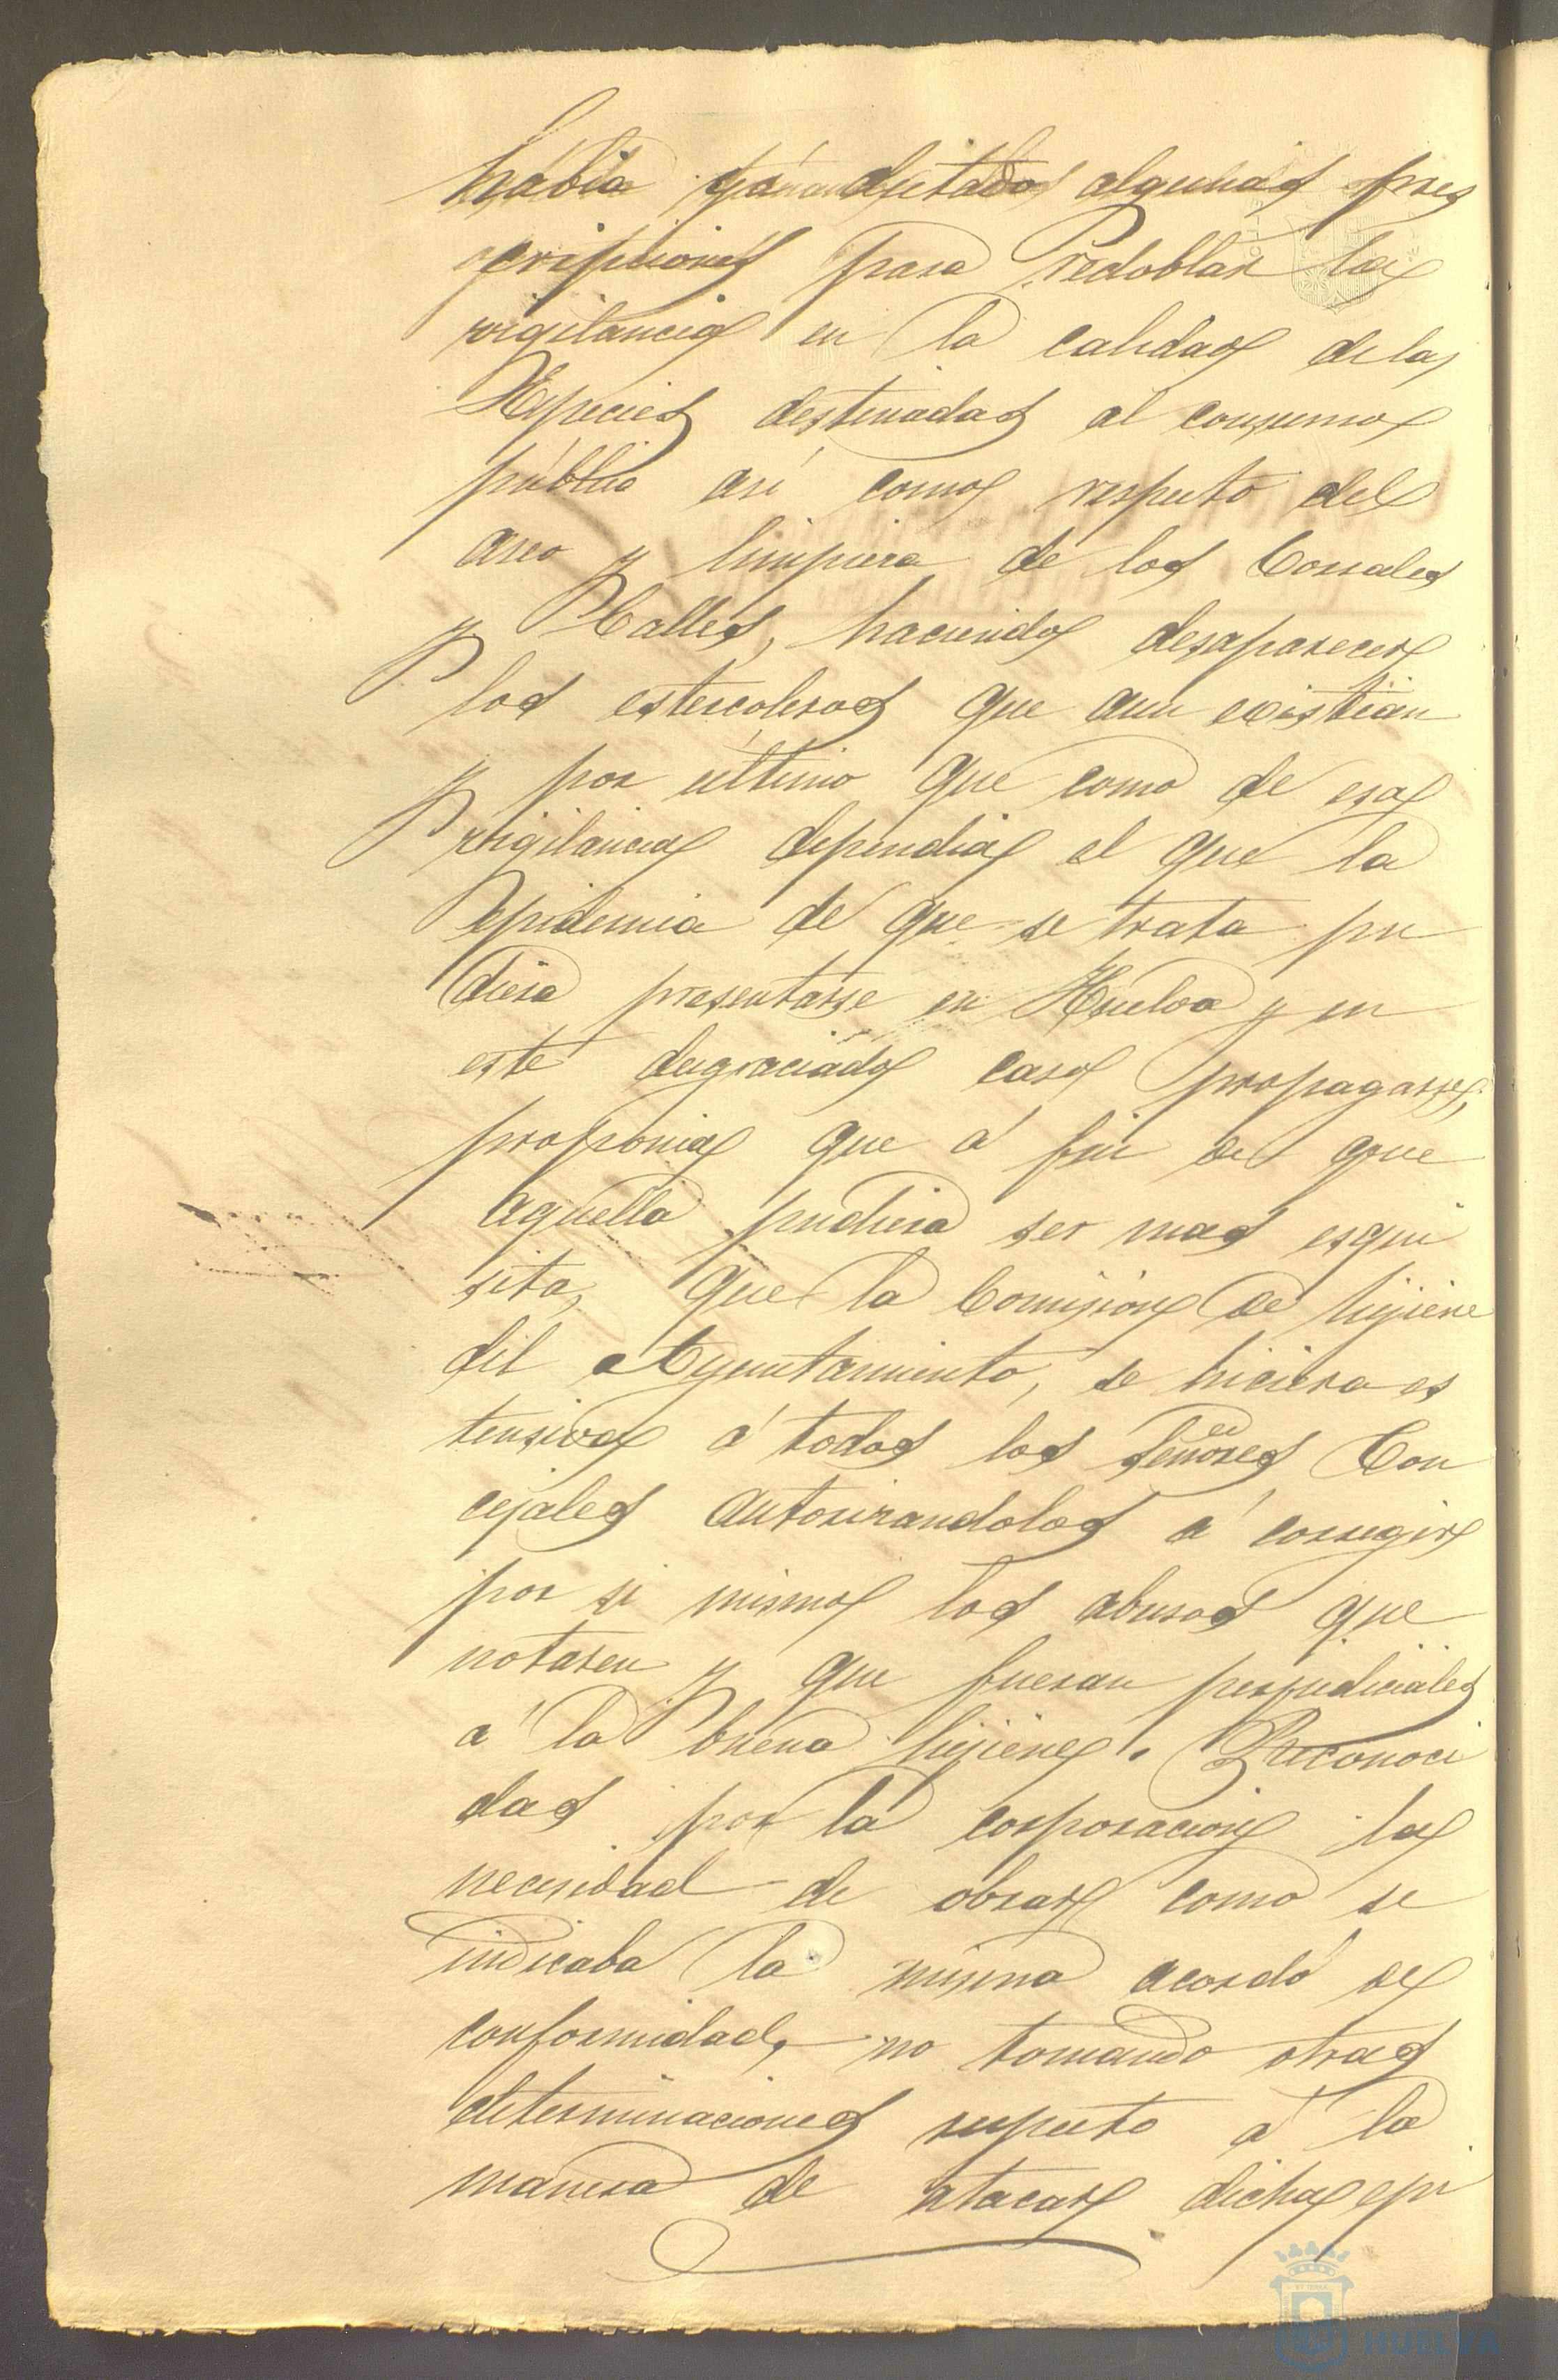 había ya dictado algunas pres
cripciones para redoblar la
vigilancia en la calidad de las
Especies destinadas al consumo
público así como respecto del
aseo y limpieza de los Corrales
y Calles, haciendo desaparecer
los estercoleros que aun existian
y por último que como de esa
vigilancia dependia el que la
epidemia de que se trata pu
diera presentarse en Huelva y en
este desgraciado caso propagarse,
proponia que á fin de que
aquella pudiera ser mas esqui
sita, que la Comision de hijiene
del Ayuntamiento, se hiciera es
tensiva á todos los señores Con
cejales autorizandolos á corregir
por si mismo los abusos que
notaren y que fueran perjudiciales
á la buena hijiene. Reconoci
das por la corporacion la
necesidad de obrar como se
indicaba la misma acordó de
conformidad, no tomando otras
determinaciones respecto á la
manera de atacar dicha epi
HUELVA